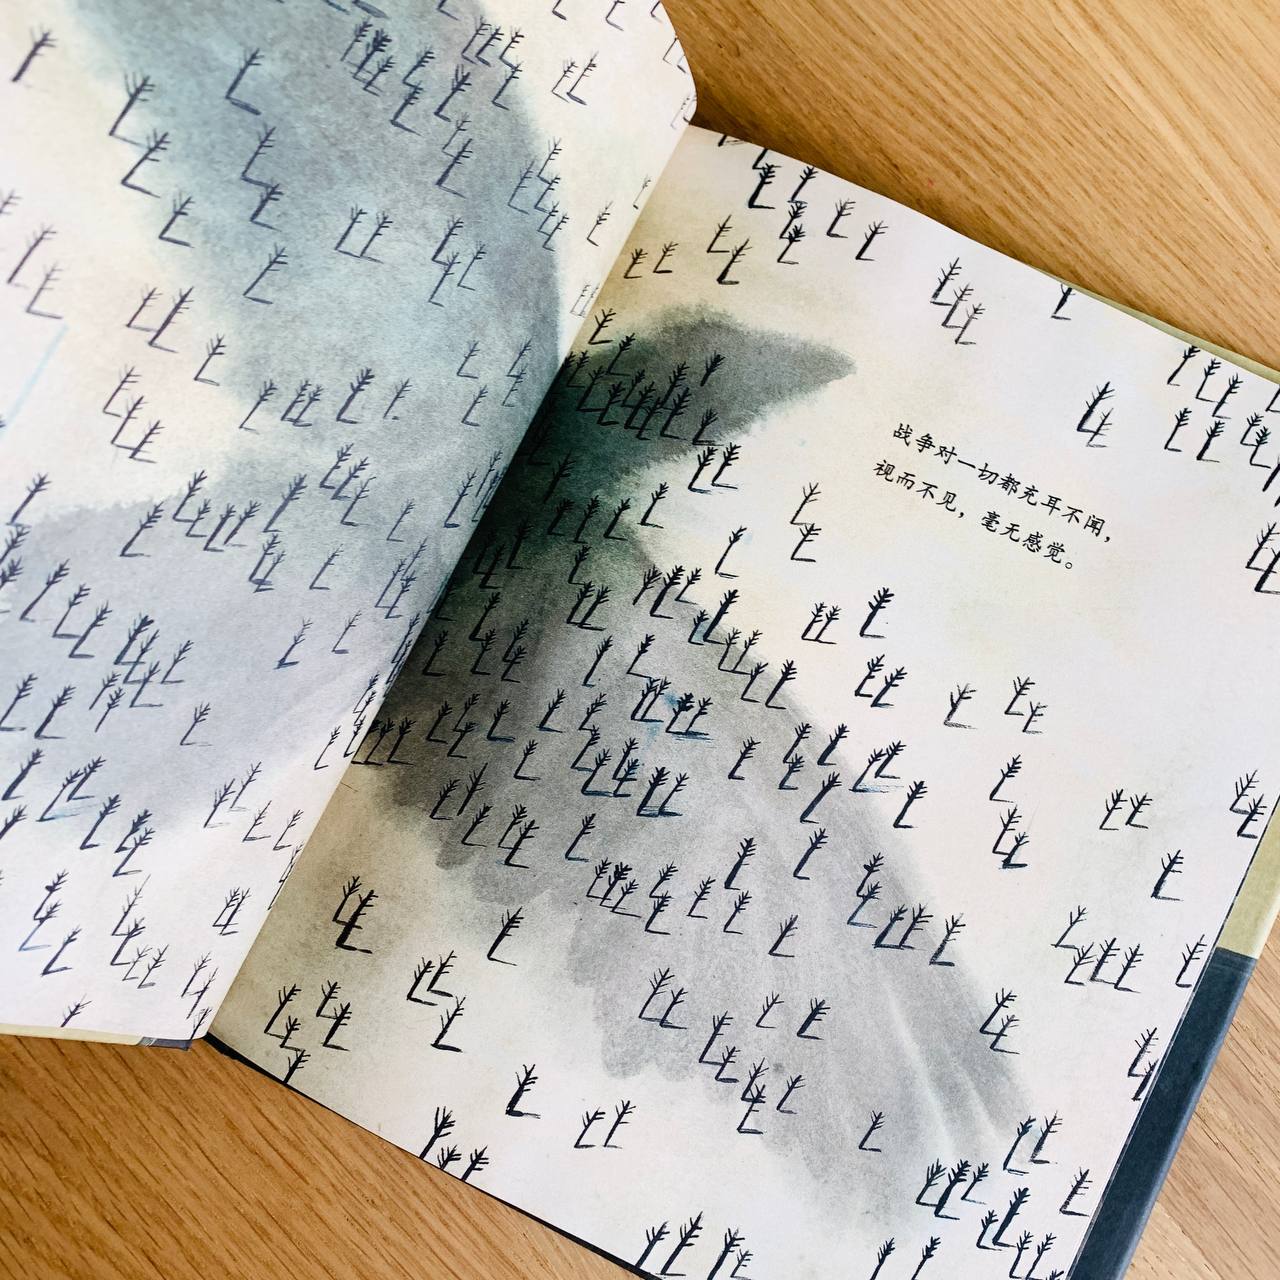 战争对一切都充耳不闻，
视而不见，毫无感觉。